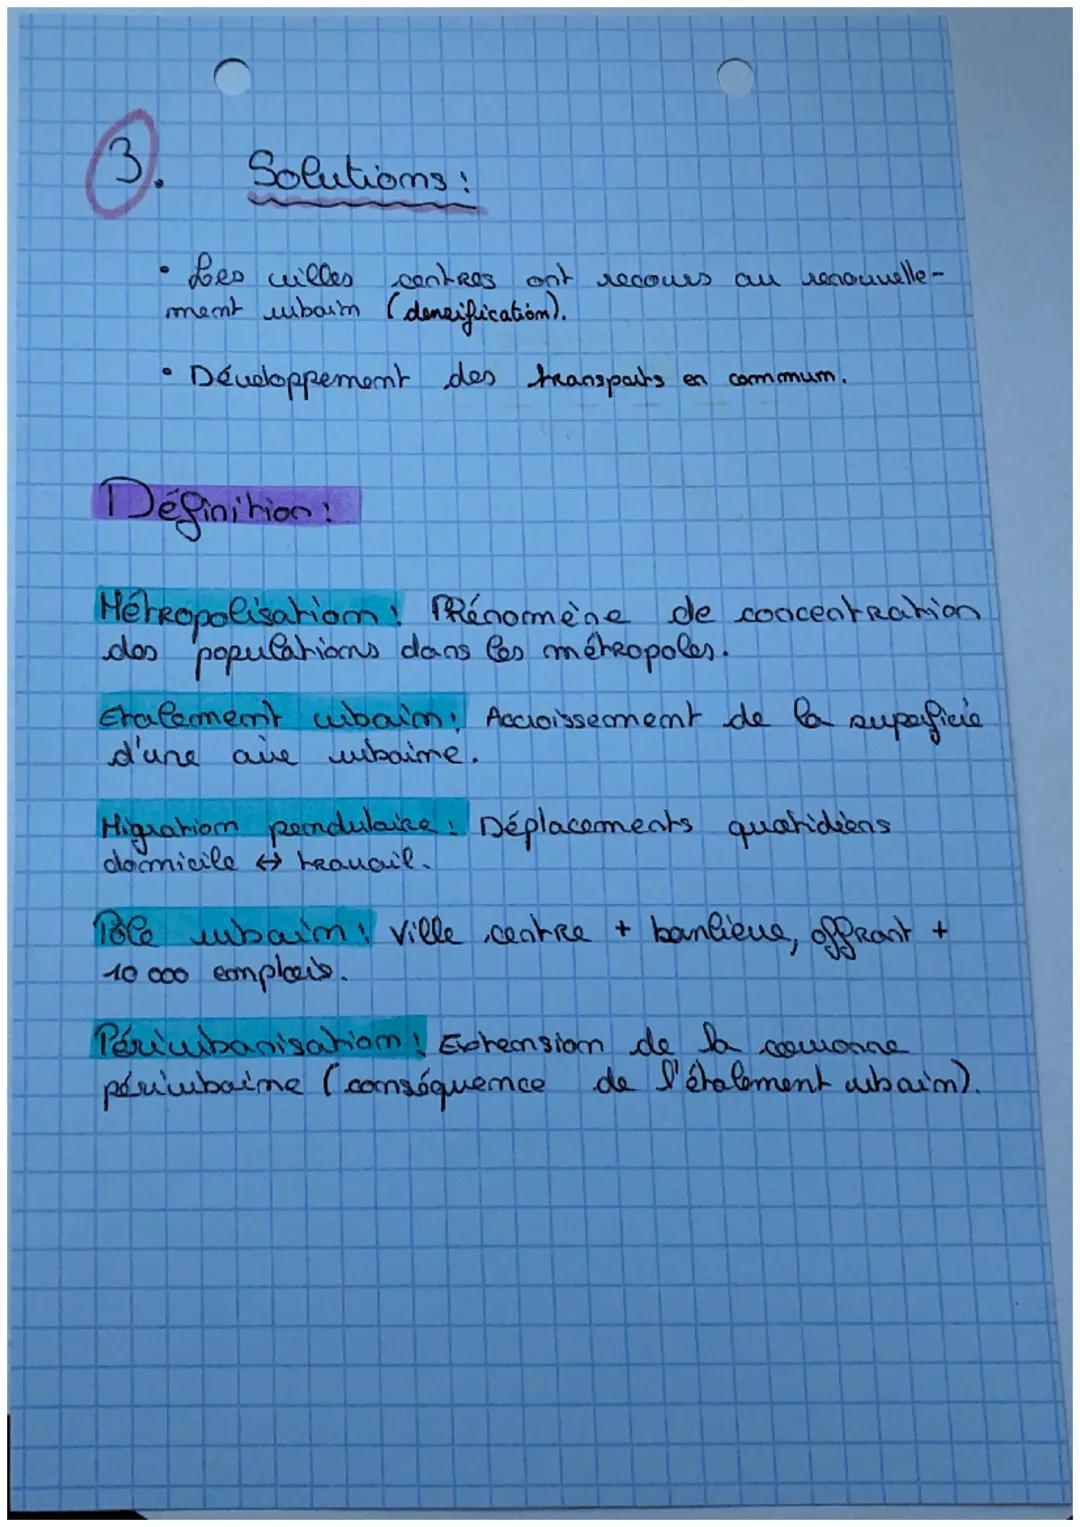 3. Solutions :
• Les villes centres ont recours au renouvelle-
ment urbain (densification).
• Développement des transports en commum.
Définition :
Métropolisation : Phénomène de concentration
des populations dans les métropoles.
Etalement urbain : Accroissement de la superficie
d'une aire urbaine.
Migration pendulaire : Déplacements quotidiens
domicile ↔ travail.
Pôle urbain : Ville centre + banlieue, offrant +
10 000 emplois.
Périurbanisation : Extension de la couronne
périurbaine (conséquence de l'étalement urbain).